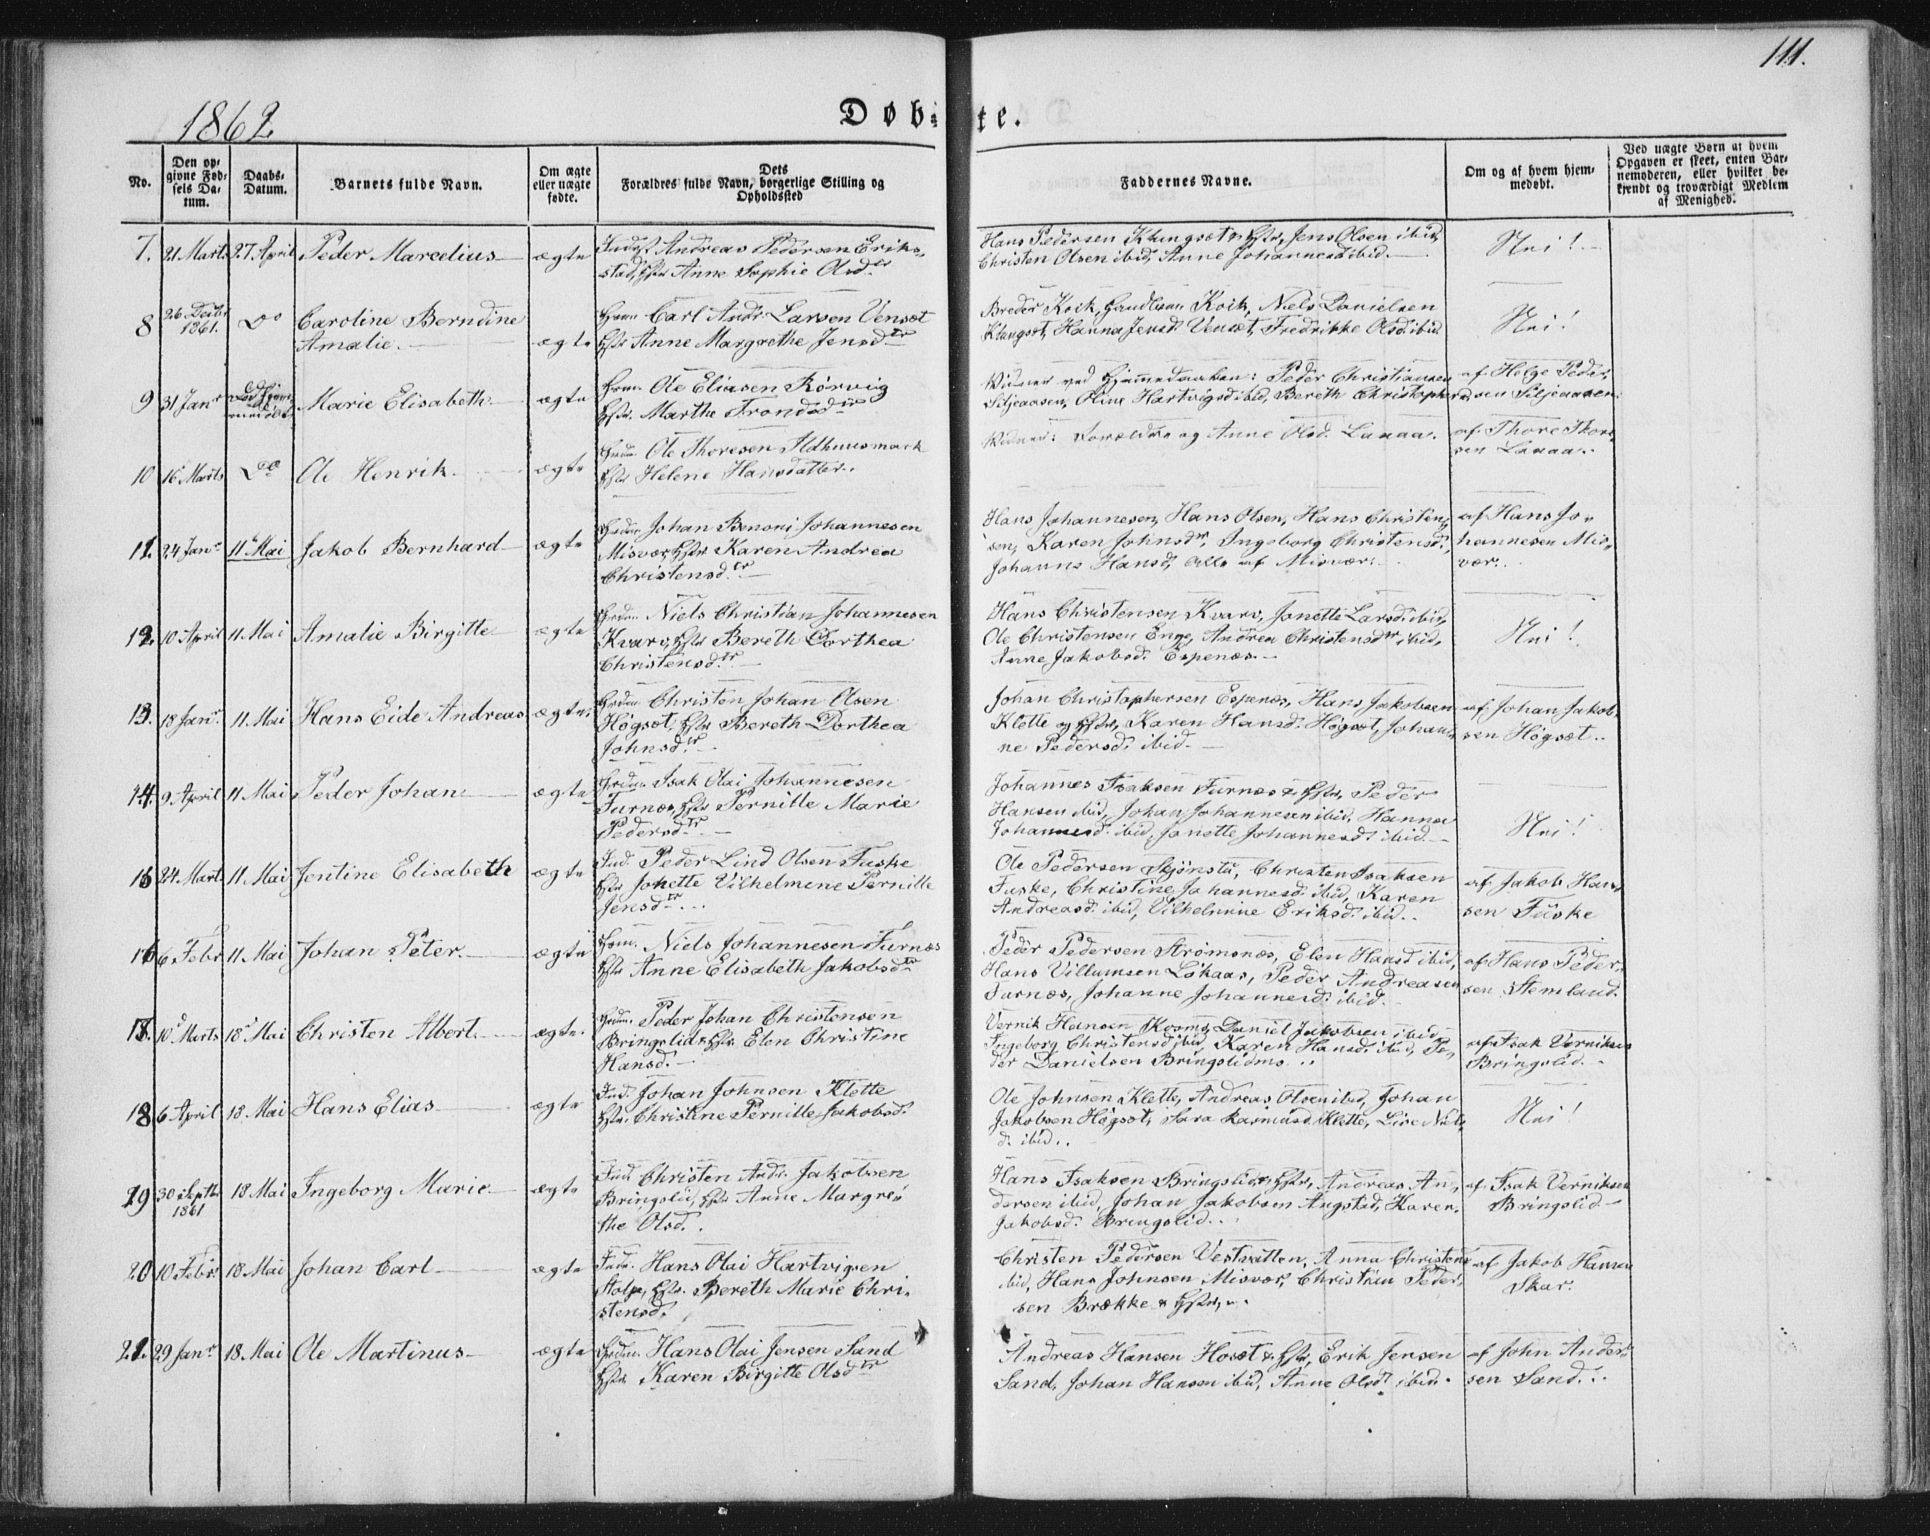 111.
1862.
Døbte.
No.
Den opgivne Fødsels Datum.
Daabs-Datum.
Barnets fulde Navn.
Om ægte eller uægte fødte.
Dets Forældres fulde Navn, borgerlige Stilling og Opholdssted
Faddernes Navne.
Om og af hvem hjemmedøbt.
Ved uægte Børn af hvem Opgaven er skeet, enten Barnemoderen, eller hvilket bekjendt og troværdigt Medlem af Menighed.
7. 21 Marts 27 April Peder Marcelius ægte
Andreas Pedersen Eriks-
stad, Anne Sophie Olsdtr
Hans Pedersen Klungsæt & Jens Olsen ibid,
Christen Olsen ibid, Anne Johannesd ibid.
Nei!
8 26 Decbr 1861. Do Caroline Berndine
Amalie. ægte
Carl Andr. Larsen Vensæt
Anne Margrethe Jensdtr
Breder Koik, Koik, Niels Danielsen
Klungsæt, Hanna Vensæt, Fredrikke Olsd ibid
Nei!
9 31 Janr Marie Elisabeth. ægte
Ole Eliasen Rörvig
Marthe Trondsdtr
Vidner ved Hjemmedaaben: Peder Christiansen
Siljeaasen, Oline Hartvigsd ibid, Bereth Christophersd
af Helge Peder-
sen Siljeaasen.
10 16 Marts Do Ole Henrik. ægte
Ole Thoresen
Helene Hansdatter.
Vidner: Forældre og Anne Olsd. Lanaa.
af Thore Thore-
sen Lanaa.
11. 24 Janr 11 Mai Jakob Bernhard ægte
Johan Benoni Johannesen
Misvær Karen Andrea
Christensdtr
Hans Johannesen, Hans Olsen, Hans Christen-
sen, Karen Johnsdr, Ingeborg Christensd.,
Johanna Hansd, alle af Misvær.
af Hans Jo-
hannesen Mis-
vær.
12. 10 April 11 Mai Amalie Birgitte ægte
Niels Christian Johannesen
Kvarv, Bereth Dorthea
Christensdtr
Hans Christensen Kvarv, Janette Larsd. ibid,
Ole Christensen Enge, Andrea Christensdr ibid,
Anne Jakobsd. Espenæs.
Nei!
13. 18 Janr. 11. Mai Hans Eide Andreas ægte
Christen Johan Olsen
Högsæt, Bereth Dorthea
Johnsdtr
Johan Christophersen Espenæs, Hans Jakobsen
Klette og Karen Hansd. Högsæt, Johan-
ne Pedersd. ibid.
af Johan Jakob-
sen Högsæt.
14. 9 April 11 Mai Peder Johan ægte
Isak Olai Johannesen
Furnæs, Pernille Marie
Pedersdtr
Johannes Isaksen Furnæs & Peder
Hansen ibid, Johan Johannesen ibid, Hanna
Johannesd. ibid, Janette Johannesd. ibid.
Nei!
15 24 Mart 11 Mai Jentine Elisabeth ægte
Ind. Peder Lind Olsen Fuske
Johette Vilhelmine Pernille
Jensdtr
Ole Pedersen Skjönstu, Christen Isaksen
Fuske, Christine Johannesd. ibid, Karen
Andreasd. ibid, Vilhelmine Eriksd. ibid.
af Jakob Han-
sen Fuske
16 6 Febr 11 Mai Johan Peter. ægte
Niels Johannesen Furnæs
Anne Elisabeth Jakobsdtr
Peder Pedersen Strömsnæs, Elen Hansd ibid,
Hans Villumsen Lökaas, Peder Andreasen
Furnæs, Johanne Johannesd. ibid.
af Hans Peder-
sen Stemland.
17. 10 Marts 18 Mai Christen Albert. ægte
Peder Johan Christensen
Bringslid & Elen Christine
Hansd.
Vernik Hansen Daniel Jakobsen ibid
Ingeborg Christensd ibid, Karen Hansd. ibid, Pe-
der Danielsen Bringslidmo
af Isak Verniksen
Bringslid.
18 6 April 18 Mai Hans Elias ægte
Ind. Johan Johnsen Klette
Christine Pernille Jakobsd.
Ole Johnsen Klette, Andreas Olsen ibid, Johan
Jakobsen Högsæt, Sara Rasmusd Klette, Lise Niels-
d. ibid.
Nei!
19 30 Septbr 1861 18 Mai Ingeborg Marie ægte
Ind Christen Andr. Jakobsen
Bringslid, Anne Margre-
the Olsd.
Hans Isaksen Bringslid & Andreas An-
dersen ibid, Johan Jakobsen Angstad, Karen
Jakobsd. Bringslid.
af Isak Verniksen
Bringslid
20 10 Febr 18 Mai Johan Carl ægte
Ind. Hans Olai Hartvigsen
Stolpe, Bereth Marie Chri-
stensd.
Christen Pedersen Vestvatten, Anna Christensd
ibid, Hans Johnsen Misvær, Christian Peder-
sen Brække &
af Jakob Hansen
Skar.
21. 29 Janr 18 Mai Ole Martinus ægte
Hans Olai Jensen Sand
Karen Birgitte Olsdtr
Andreas Hansen Hosæt & Erik Jensen
Sand, Johan Hansen ibid, Anne Olsd ibid.
af John Ander-
sen Sand.